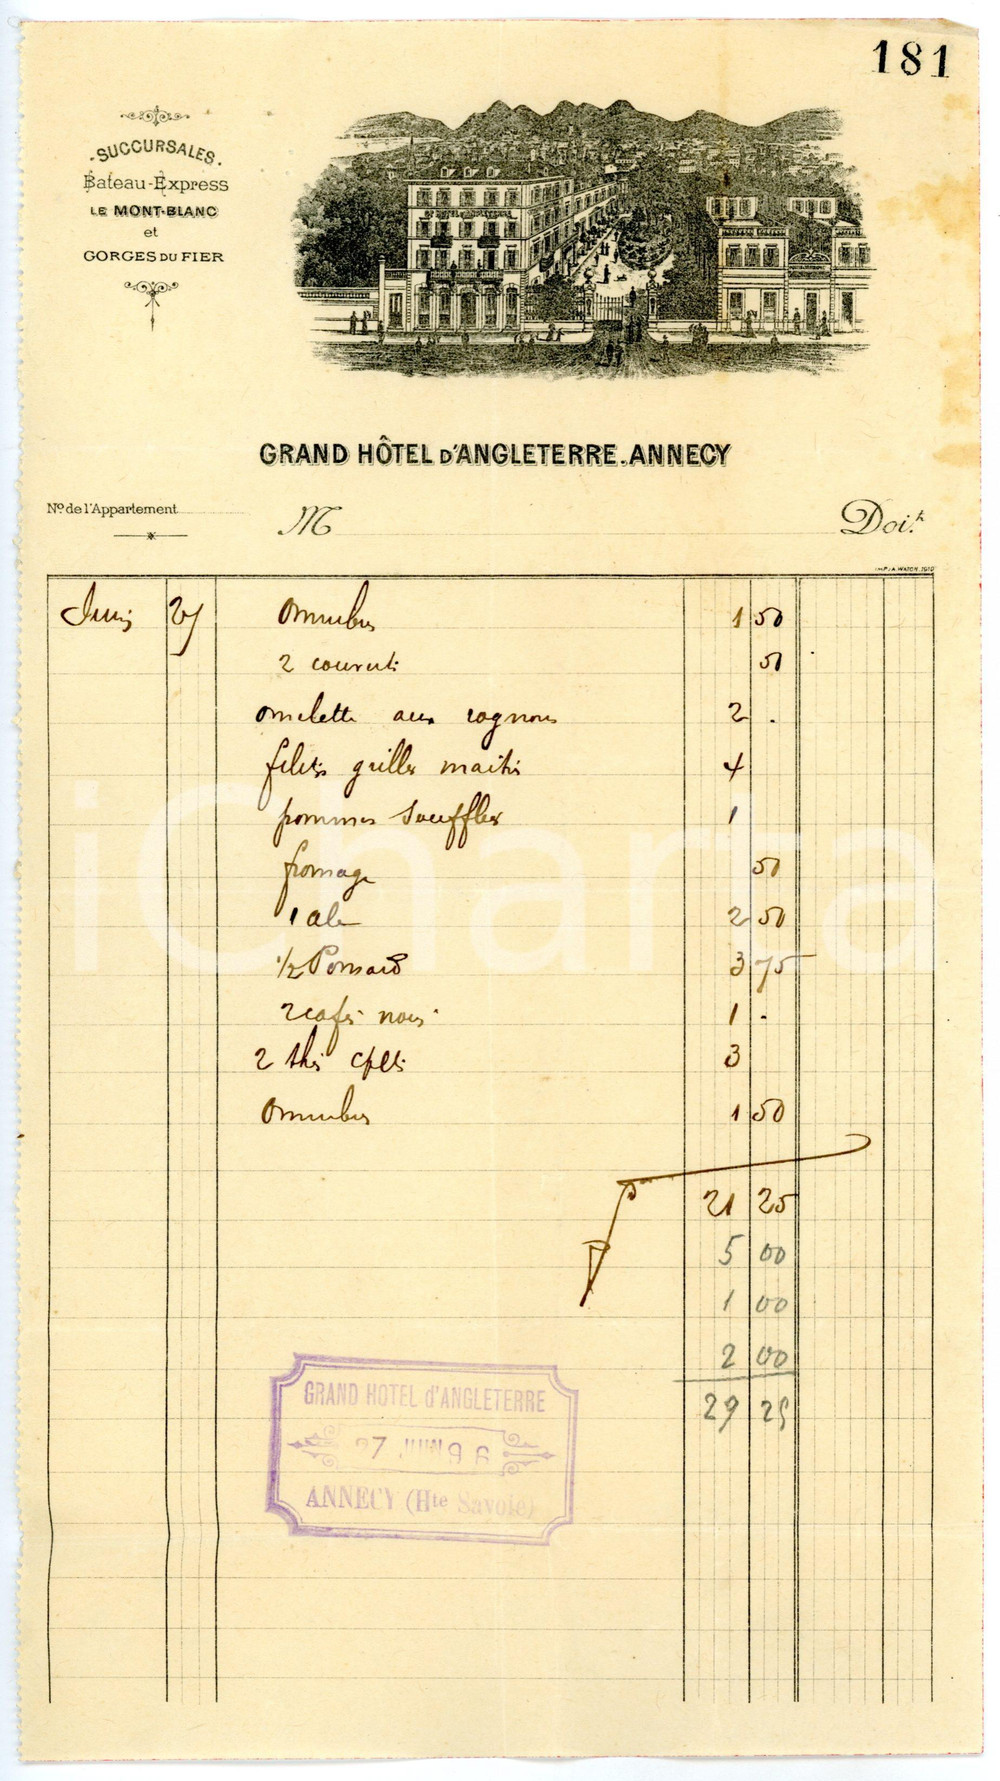 181
SUCCURSALES.
Bateau-Express
LE MONT-BLANC
et
GORGES DU FIER
GRAND HÔTEL D'ANGLETERRE. ANNECY
Nº de l'Appartement
M
Doit
Juin 27 Omnibus 1 50
2 couverts 50
omelette aux rognons 2 .
filets grillés maître 4
pommes soufflées 1
fromage 50
1 ale 2 50
1/2 Pomard 3 75
2 cafés noirs 1 .
2 thés cplts 3
Omnibus 1 50
21 25
5 00
1 00
2 00
29 25
GRAND HOTEL d'ANGLETERRE
27 JUIN 96
ANNECY (Hte Savoie)
iCharta